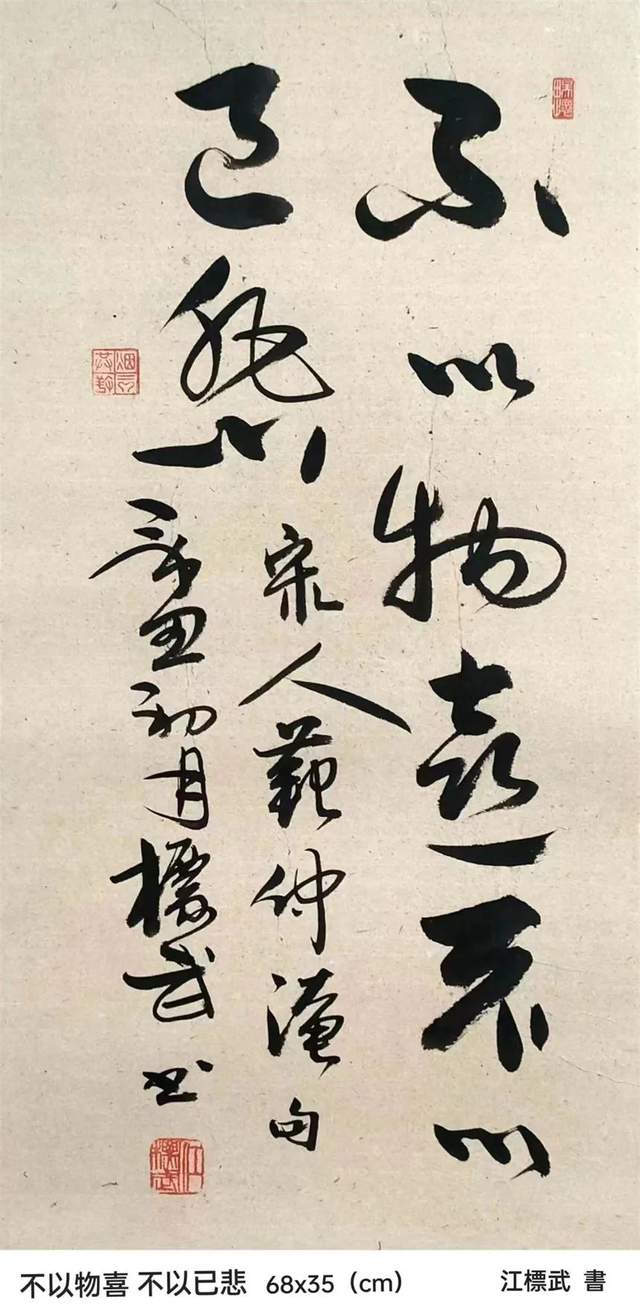 不以物喜不以
己悲
宋人范仲淹句
辛丑初月標武书
江標武
不以物喜 不以已悲 68x35（cm） 江標武 書